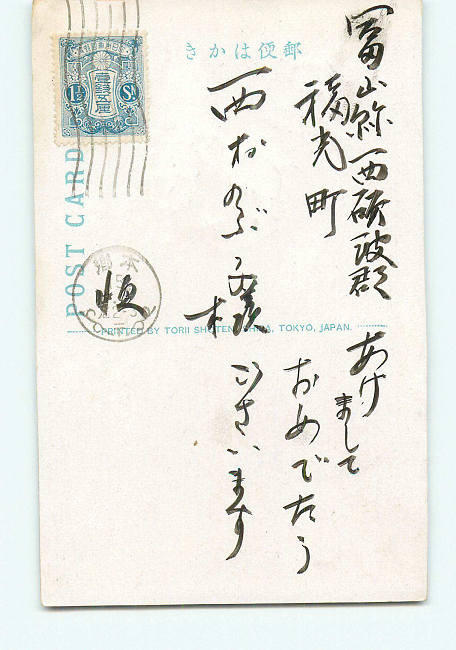 郵便はかき
富山縣西礪波郡
福光町
西おのぶ様
あけまして
おめでたう
ございます
1½ Sn
大日本帝國郵便
壹錢五厘
POST CARD
本郷
PRINTED BY TORII SHOTEN, SHIBA, TOKYO, JAPAN.